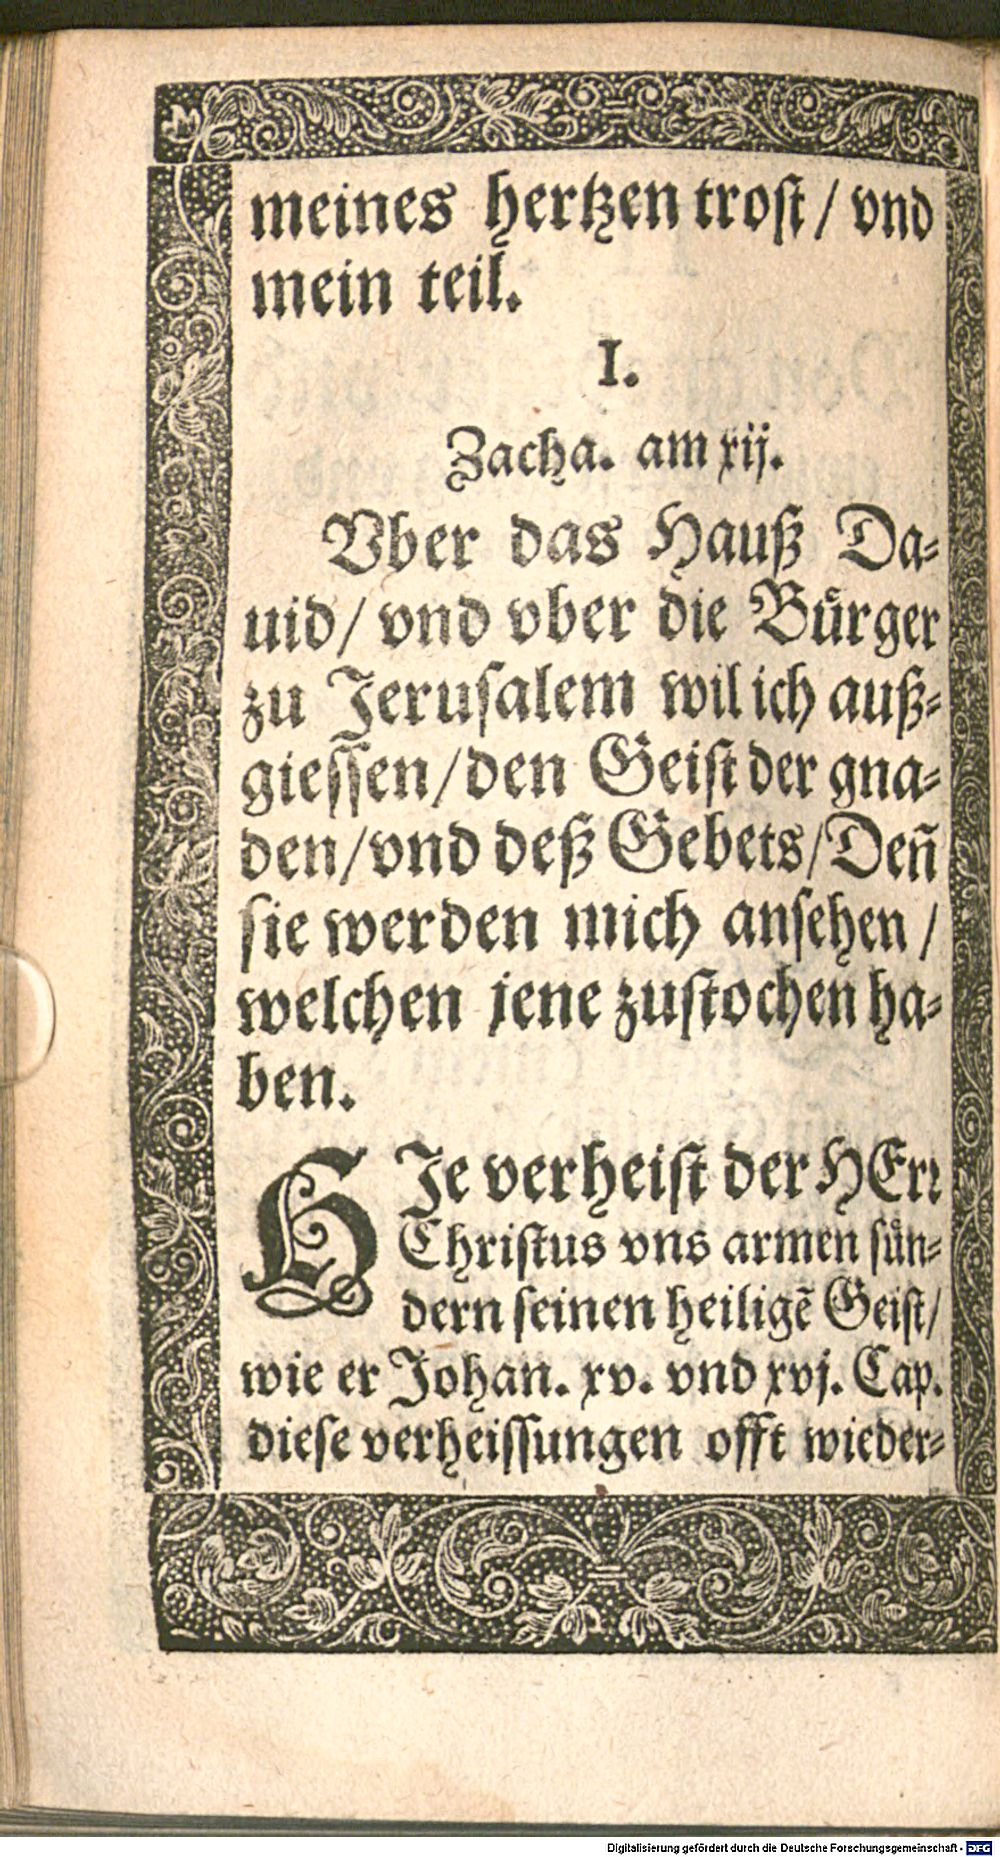 meines hertzen trost / vnd
mein teil.
I.
Zacha. am xij.
Vber das Hauß Da-
uid / vnd vber die Bürger
zu Jerusalem wil ich auß-
giessen / den Geist der gna-
den / vnd deß Gebets / Deñ
sie werden mich ansehen /
welchen jene zustochen ha-
ben.
HJe verheist der HErr
Christus vns armen sün-
dern seinen heiligē Geist /
wie er Johan. xv. vnd xvj. Cap.
diese verheissungen offt wieder-
Digitalisierung gefördert durch die Deutsche Forschungsgemeinschaft - DFG